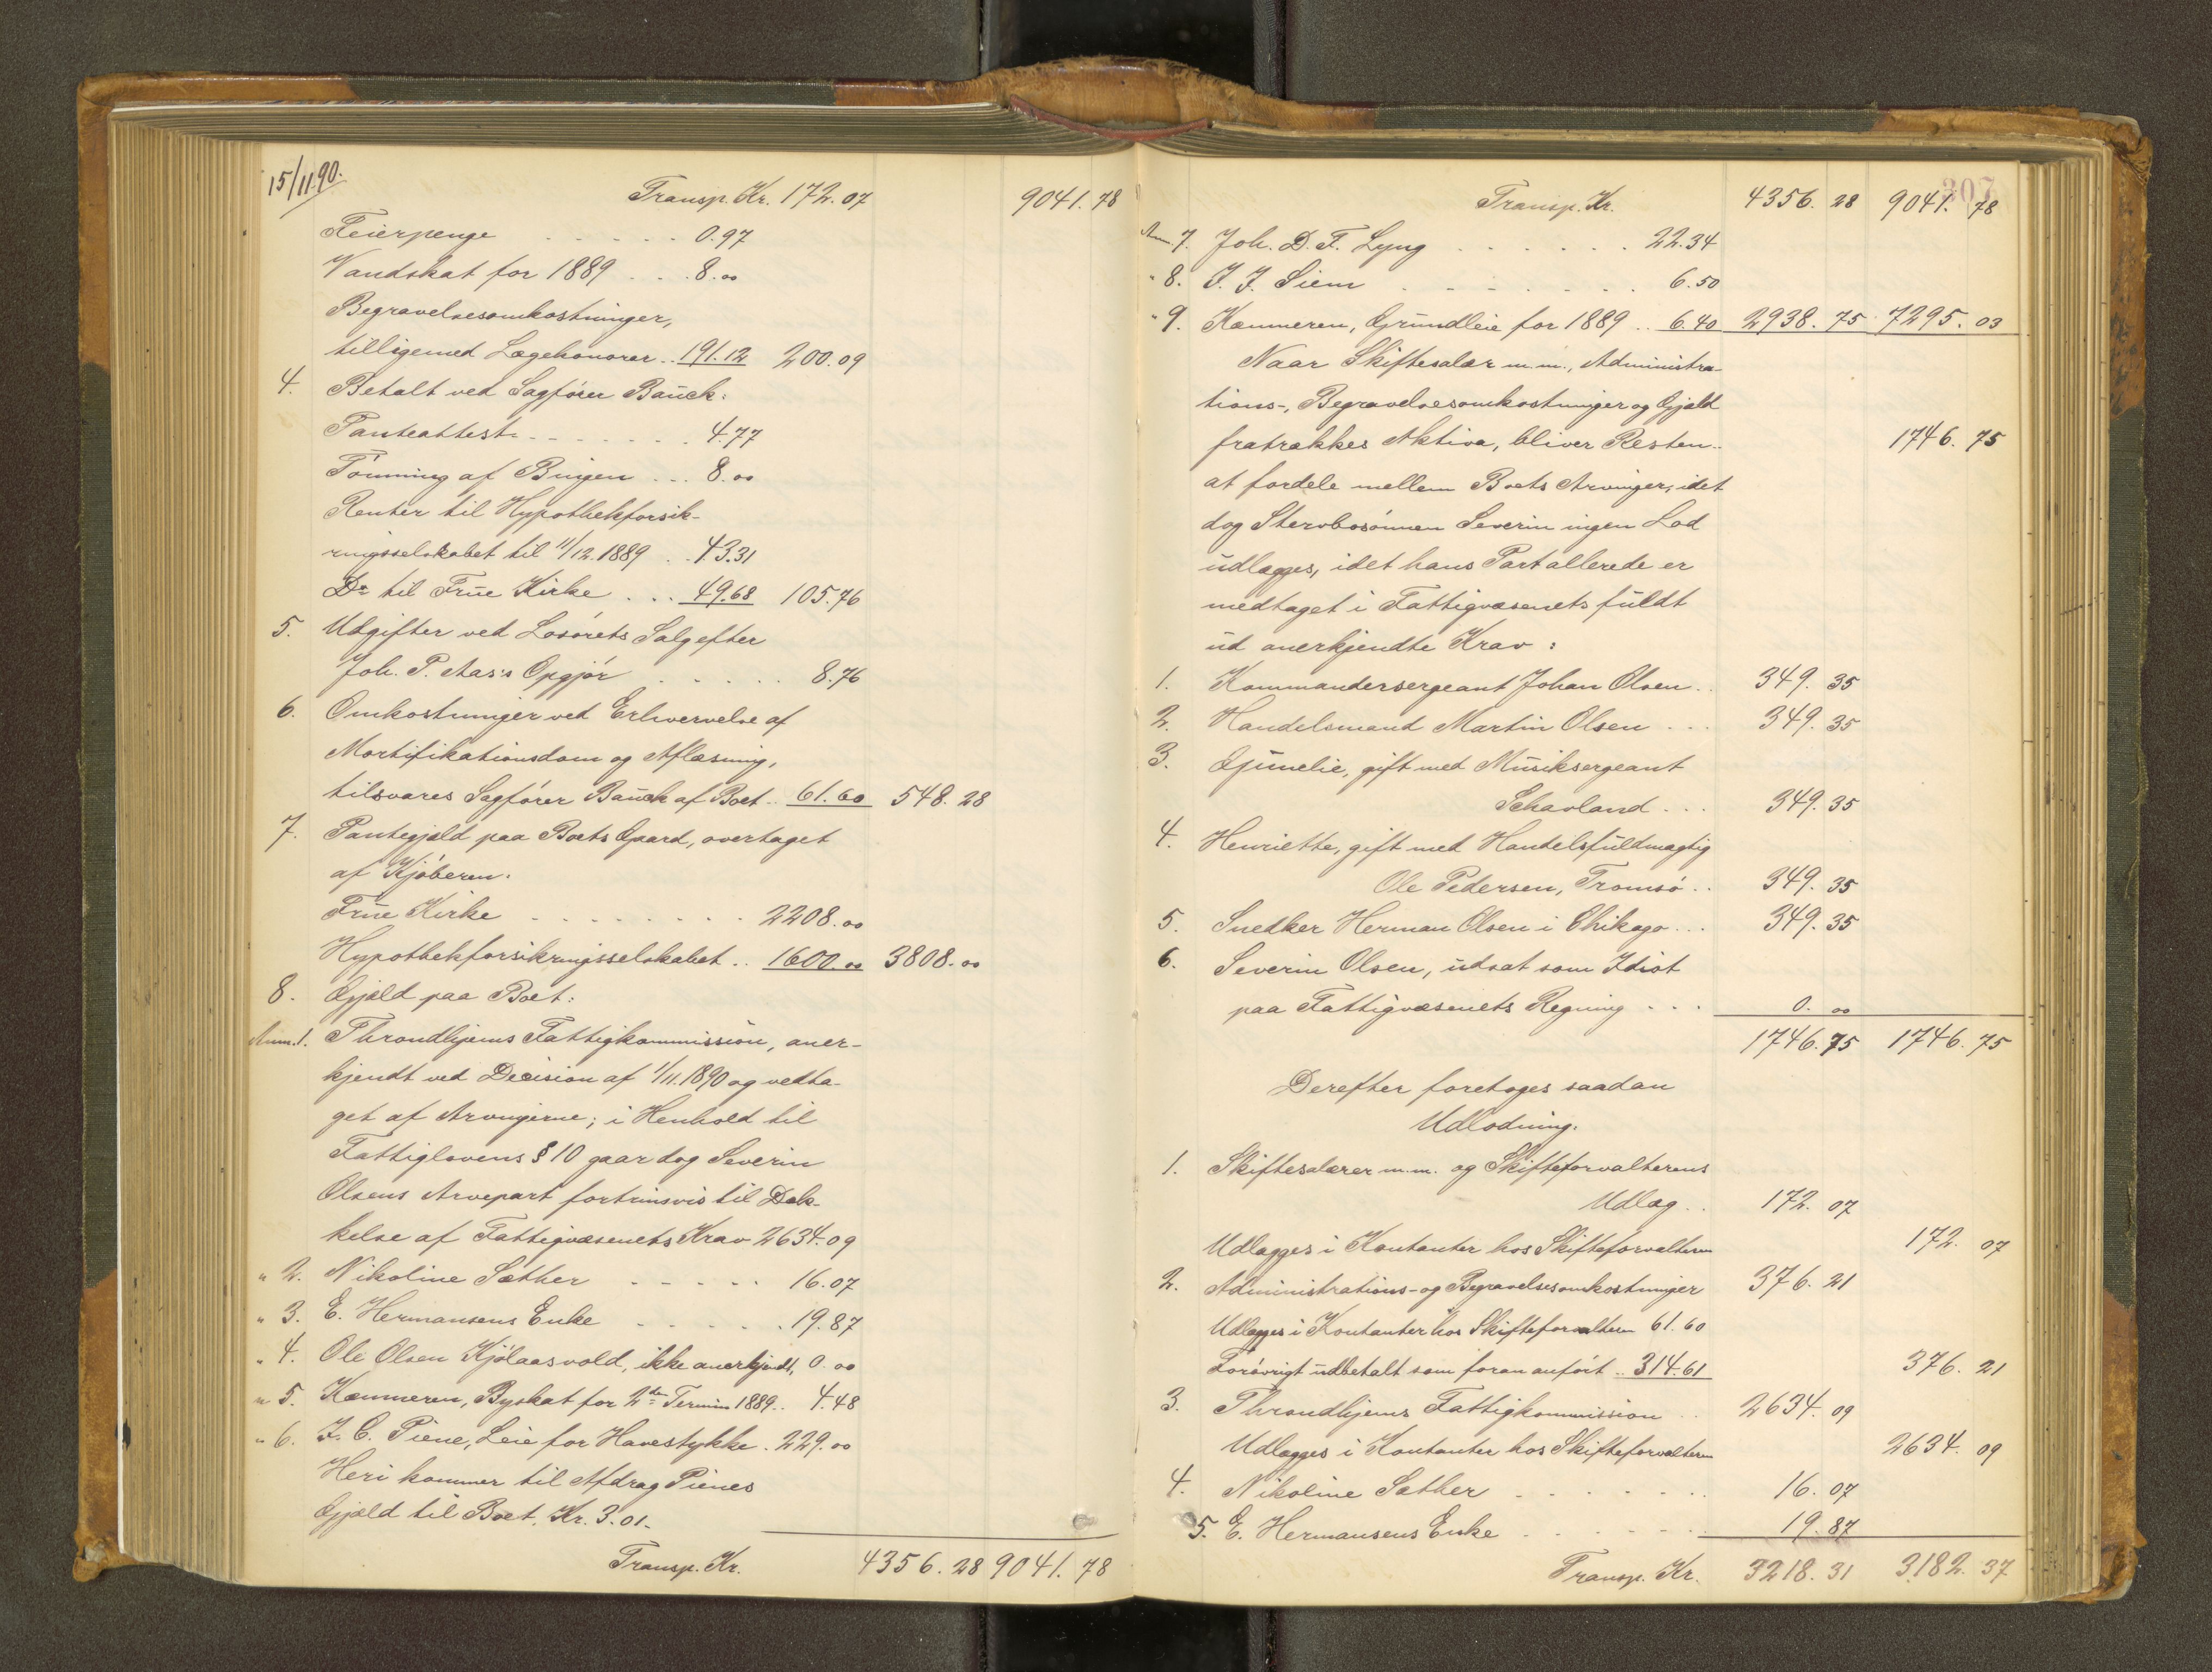 15/11.90.
Transp. Kr. 172.07 9041.78
Feierpenge - - - - - 0.97
Vandskat for 1889 - . . 8.00
Begravelsesomkostninger,
tilligemed Lægehonorar . . 191.12 200.09
4. Betalt ved Sagfører Bauck:
Panteattest - - - - - - - 4.77
Tømning af Bingen . . . 8.00
Renter til Hypothekforsik-
ringsselskabet til 11/12.1889 . . 43.31
Do til Frue Kirke . . . 49.68 105.76
5. Udgifter ved Løsørets Salg efter
Joh. P. Aas's Opgjør . . . . . 8.76
6. Omkostninger ved Erhvervelse af
Mortifikationsdom og Aflæsning,
tilsvares Sagfører Bauck af Boet . . 61.60 548.28
7. Pantegjæld paa Boets Gaard, overtaget
af Kjøberen:
Frue Kirke - - - - - - - - 2208.00
Hypothekforsikringsselskabet . . 1600.00 3808.00
8. Gjæld paa Boet:
Anm. 1. Throndhjems Fattigkommission, aner-
kjendt ved Decision af 1/11.1890 og vedta-
get af Arvingerne; i Henhold til
Fattiglovens § 10 gaar dog Severin
Olsens Arvepart fortrinsvis til Dæk-
kelse af Fattigvæsenets Krav 2634.09
" 2. Nikoline Sæther - - - - - 16.07
" 3. E. Hermansens Enke - - - - - 19.87
" 4. Ole Olsen Kjølaasvold, ikke anerkjendt, 0.00
" 5. Kæmneren, Byskat for 2den Termin 1889 . . 4.48
" 6. J. C. Piene, Leie for Havestykke . 229.00
Heri kommer til Afdrag Pienes
Gjæld til Boet, Kr. 3.01.-
Transp. Kr. 4356.28 9041.78
307
Transp. Kr. 4356.28 9041.78
Anm. 7. Joh. D. F. Lyng . . . . . . 22.34
" 8. J. J. Siem . - - - - - . 6.50
" 9. Kæmneren, Grundleie for 1889 . . 6.40 2938.75 7295.03
Naar Skiftesalær m.m., Administra-
tions-, Begravelsesomkostninger og Gjæld
fratrækkes Aktiva, bliver Resten . . 1746.75
at fordele mellem Boets Arvinger, idet
dog Stervbosønnen Severin ingen Lod
udlægges, idet hans Part allerede er
medtaget i Fattigvæsenets fuldt
ud anerkjendte Krav:
1. Kommandersergeant Johan Olsen . . 349.35
2. Handelsmand Martin Olsen . . . 349.35
3. Gunelie, gift med Musiksergeant
Schavland . . . 349.35
4. Henriette, gift med Handelsfuldmægtig
Ole Pedersen, Tromsø . . 349.35
5. Snedker Herman Olsen i Chikago . . . 349.35
6. Severin Olsen, udsat som Idiot
paa Fattigvæsenets Regning - - - 0.00
1746.75 1746.75
Derefter foretages saadan
Udlodning.
1. Skiftesalærer m.m. og Skifteforvalterens
Udlæg . . 172.07
Udlægges i Kontanter hos Skifteforvalteren 172.07
2. Administrations- og Begravelsesomkostninger 376.21
Udlægges i Kontanter hos Skifteforvalteren 61.60
Forøvrigt udbetalt som foran anført . . 314.61 376.21
3. Throndhjems Fattigkommission . . 2634.09
Udlægges i Kontanter hos Skifteforvalteren 2634.09
4. Nikoline Sæther - - - - - - 16.07
5. E. Hermansens Enke - - - - - - 19.87
Transp. Kr. 3218.31 3182.37